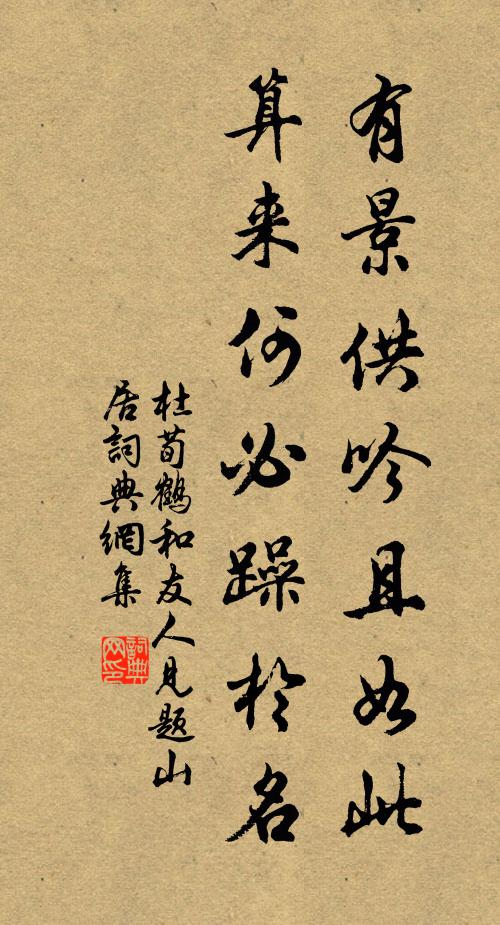 有景供吟且如此
算来何必躁於名
杜荀鶴和友人見题山
居詞典網集
詞典
网印